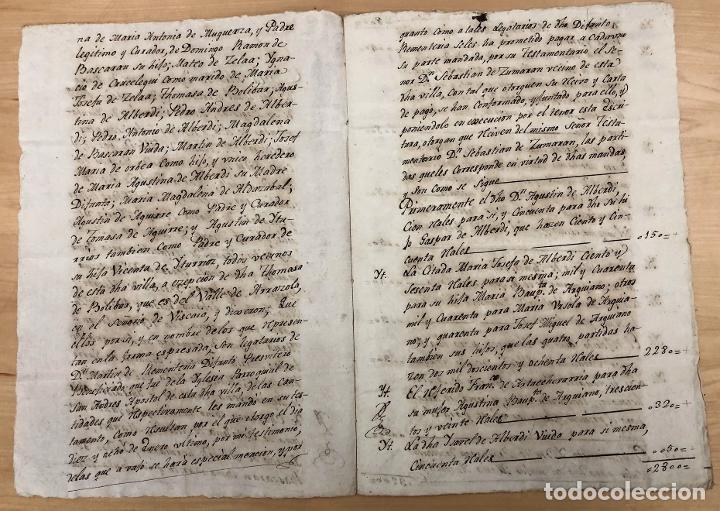 na de Maria Antonia de Muguerza, y Padre
legitimo y Curador, de Domingo Ramon de
Bascaran su hijo; Mateo de Zelaa; Igna-
cio de Cracelegui Como marido de Maria
Josefa de Zelaa; Thomasa de Bolibar; Agus-
tina de Alberdi; Pedro Andres de Alber-
di; Pedro Antonio de Alberdi; Magdalena
de Bascaran Viuda; Martin de Alberdi; Josef
Maria de orbea Como hijo, y unico heredero
de Maria Agustina de Alberdi su Madre
Difunta; Maria Magdalena de Aldazabal;
Agustin de Aguirre Como Padre y Curador
de Tomasa de Aguirre; y Agustin de Ytu-
rrios tambien Como Padre y Curador de
su hija Vicenta de Yturrioz, todos vecinos
de esta dha villa, a excepcion de dha Thomasa
de Bolibar, que es del Valle de Arrazola,
en el Señorio de Viscaia, y dixeron: Que
ellos por si, y en nombre de los que represen-
tan en la forma expresada, son legatarios de
Dn. Martin de Rementeria Difunto Presvitero
Beneficiado que fue de la Iglesia Parroquial de
San Andres Apostol de esta dha villa, de las can-
tidades que respectivamente les mandó en su tes-
tamento, Como resultan por el que otorgo el dia
diez y ocho de Enero ultimo, por mi testimonio,
de las que a vajo se hará especial mencion, y por
quanto como a tales legatarios de dho Difunto
Rementeria seles ha prometido pagar a Cada uno
su parte mandada, por su Testamentario el Se-
ñor Dn. Sebastian de Zumaran vecino de esta
dha villa, Con tal que otorguen su Recivo y Carta
de pago, se han Conformado, y juntado para ello, y
poniendolo en execucion por el tenor esta Escri-
tura, otorgan que Reciven del mismo Señor Testa-
mentario Dn. Sebastian de Zumaran, las parti-
das que les Corresponde en virtud de dhas mandas,
y son como se sigue
Primeramente el dho Dn. Agustin de Alberdi
Cien Reales para si, y Cincuenta para dho su hi-
jo Gaspar de Alberdi, que hazen Ciento y Cin-
cuenta Reales 0150=+
Yt. La Viuda Maria Josefa de Alberdi Ciento y
Sesenta Reales para si mesma; mil y Cuarenta
para su hija Maria Baupta. de Arguiano; otros
mil y Cuarenta para Maria Ursola de Arguia-
no; y quarenta para Josef Miguel de Arguiano
tambien sus hijos, que las quatro partidas ha-
zen dos mil doscientos y ochenta Reales 2280=+
Yt. El referido Franco. de Astaechevarria para dha
su mujer Agustina Baupta. de Arguiano, trescien-
tos y veinte Reales 0320=+
Yt. La dha Isavel de Alberdi Viuda para si mesma,
Cincuenta Reales 0050=+
02800=+
todocoleccion.net